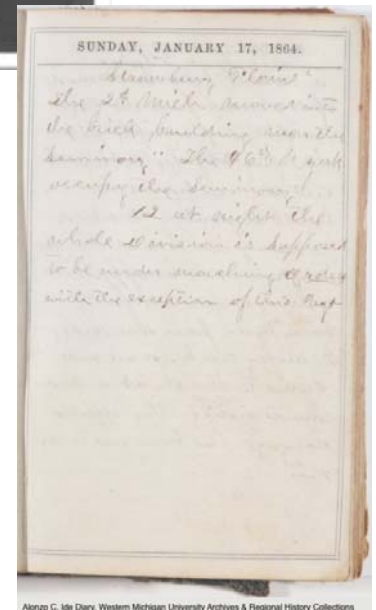 SUNDAY, JANUARY 17, 1864.
Strawberry Plains
The 2d Mich moved into
the brick building near the
Seminary" The 46th N York
occupy the Seminary
12 at night the
whole Division is supposed
to be under marching Orders
with the exception of this Regt
Alonzo C. Ide Diary, Western Michigan University Archives & Regional History Collections